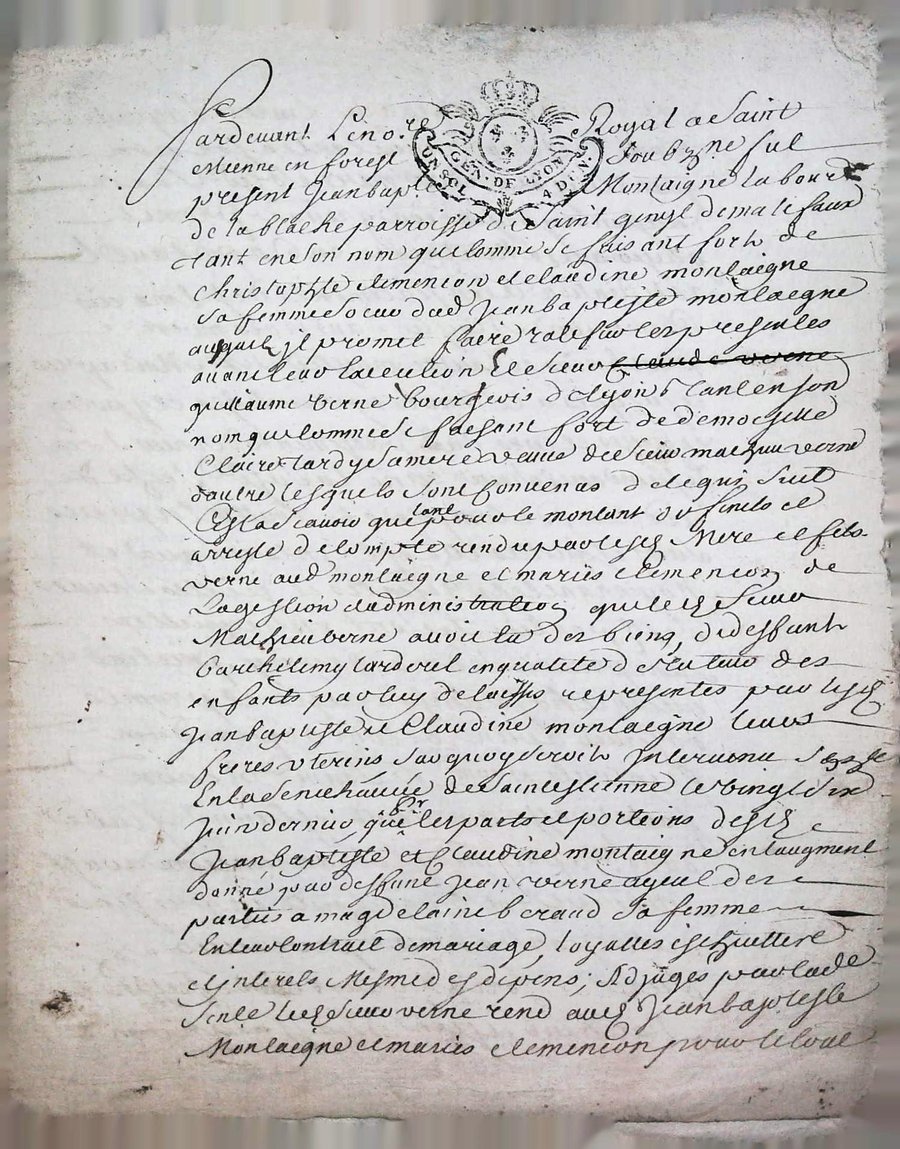 Pardevant le no.re Royal a Saint
GEN. DE LYON
UN SOL 4 DEN.
etienne en forest soubz.ne fut
present Jean bap.te Montaigne labour
de la blache parroisse de Saint genest de malifaux
tant en son nom que comme se faisant fort de
Christophle clemencon et claudine montaigne
sa femme soeur dud Jean baptiste montaigne
auquel jl promet faire ratiffier les presentes
avant leur execution Et sieur Claude verne
guillaume verne bourgeois de lyon tant en son
nom que comme se faisant fort de demoiselle
Claire tardy sa mere veuve de sieur mathieu verne
d'autre lesquels sont convenus de ce qui suit
C'est a scavoir que tant pour le montant du finito et
arresté de compte rendu par lesd Mere et fils
verne aud montaigne et mariés clemencon de
La gestion et administration que led Sieur
Mathieu verne avoit eu des biens de deffunt
barthelemy tardivel en qualité de tuteur des
enfants par luy delaissés representés par lesd
Jean baptiste et Claudine montaigne leurs
freres uterins sur quoy seroit Intervenu
En la Senechaucée de Saint estienne le vingt six
Juin dernier que les parts et portions desd
Jean baptiste et Claudine montaigne en laugment
donné par deffunt Jean verne ayeul des
parties a magdelaine beraud sa femme
En leur contract de mariage, loyalles
et jnterets Mesme depens; Adjugés par lad
Sence led Sieur verne rend aud Jean baptiste
Montaigne et mariés clemencon pour le tout